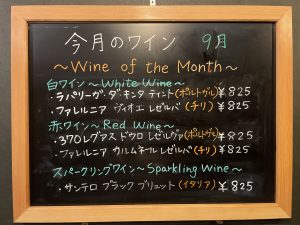 今月のワイン 9月
～Wine of the Month～
白ワイン～White Wine～
・ラパリーガ・ダ・キンタ ティント(ポルトガル) ¥825
・ファレルニア ヴィオニエ レゼルバ (チリ) ¥825
赤ワイン～Red Wine～
・370レグアス ドウロ レゼルヴァ(ポルトガル) ¥825
・ファレルニア カルムネール レゼルバ (チリ) ¥825
スパークリングワイン～Sparkling Wine～
・サンテロ ブラック ブリュット (イタリア) ¥825